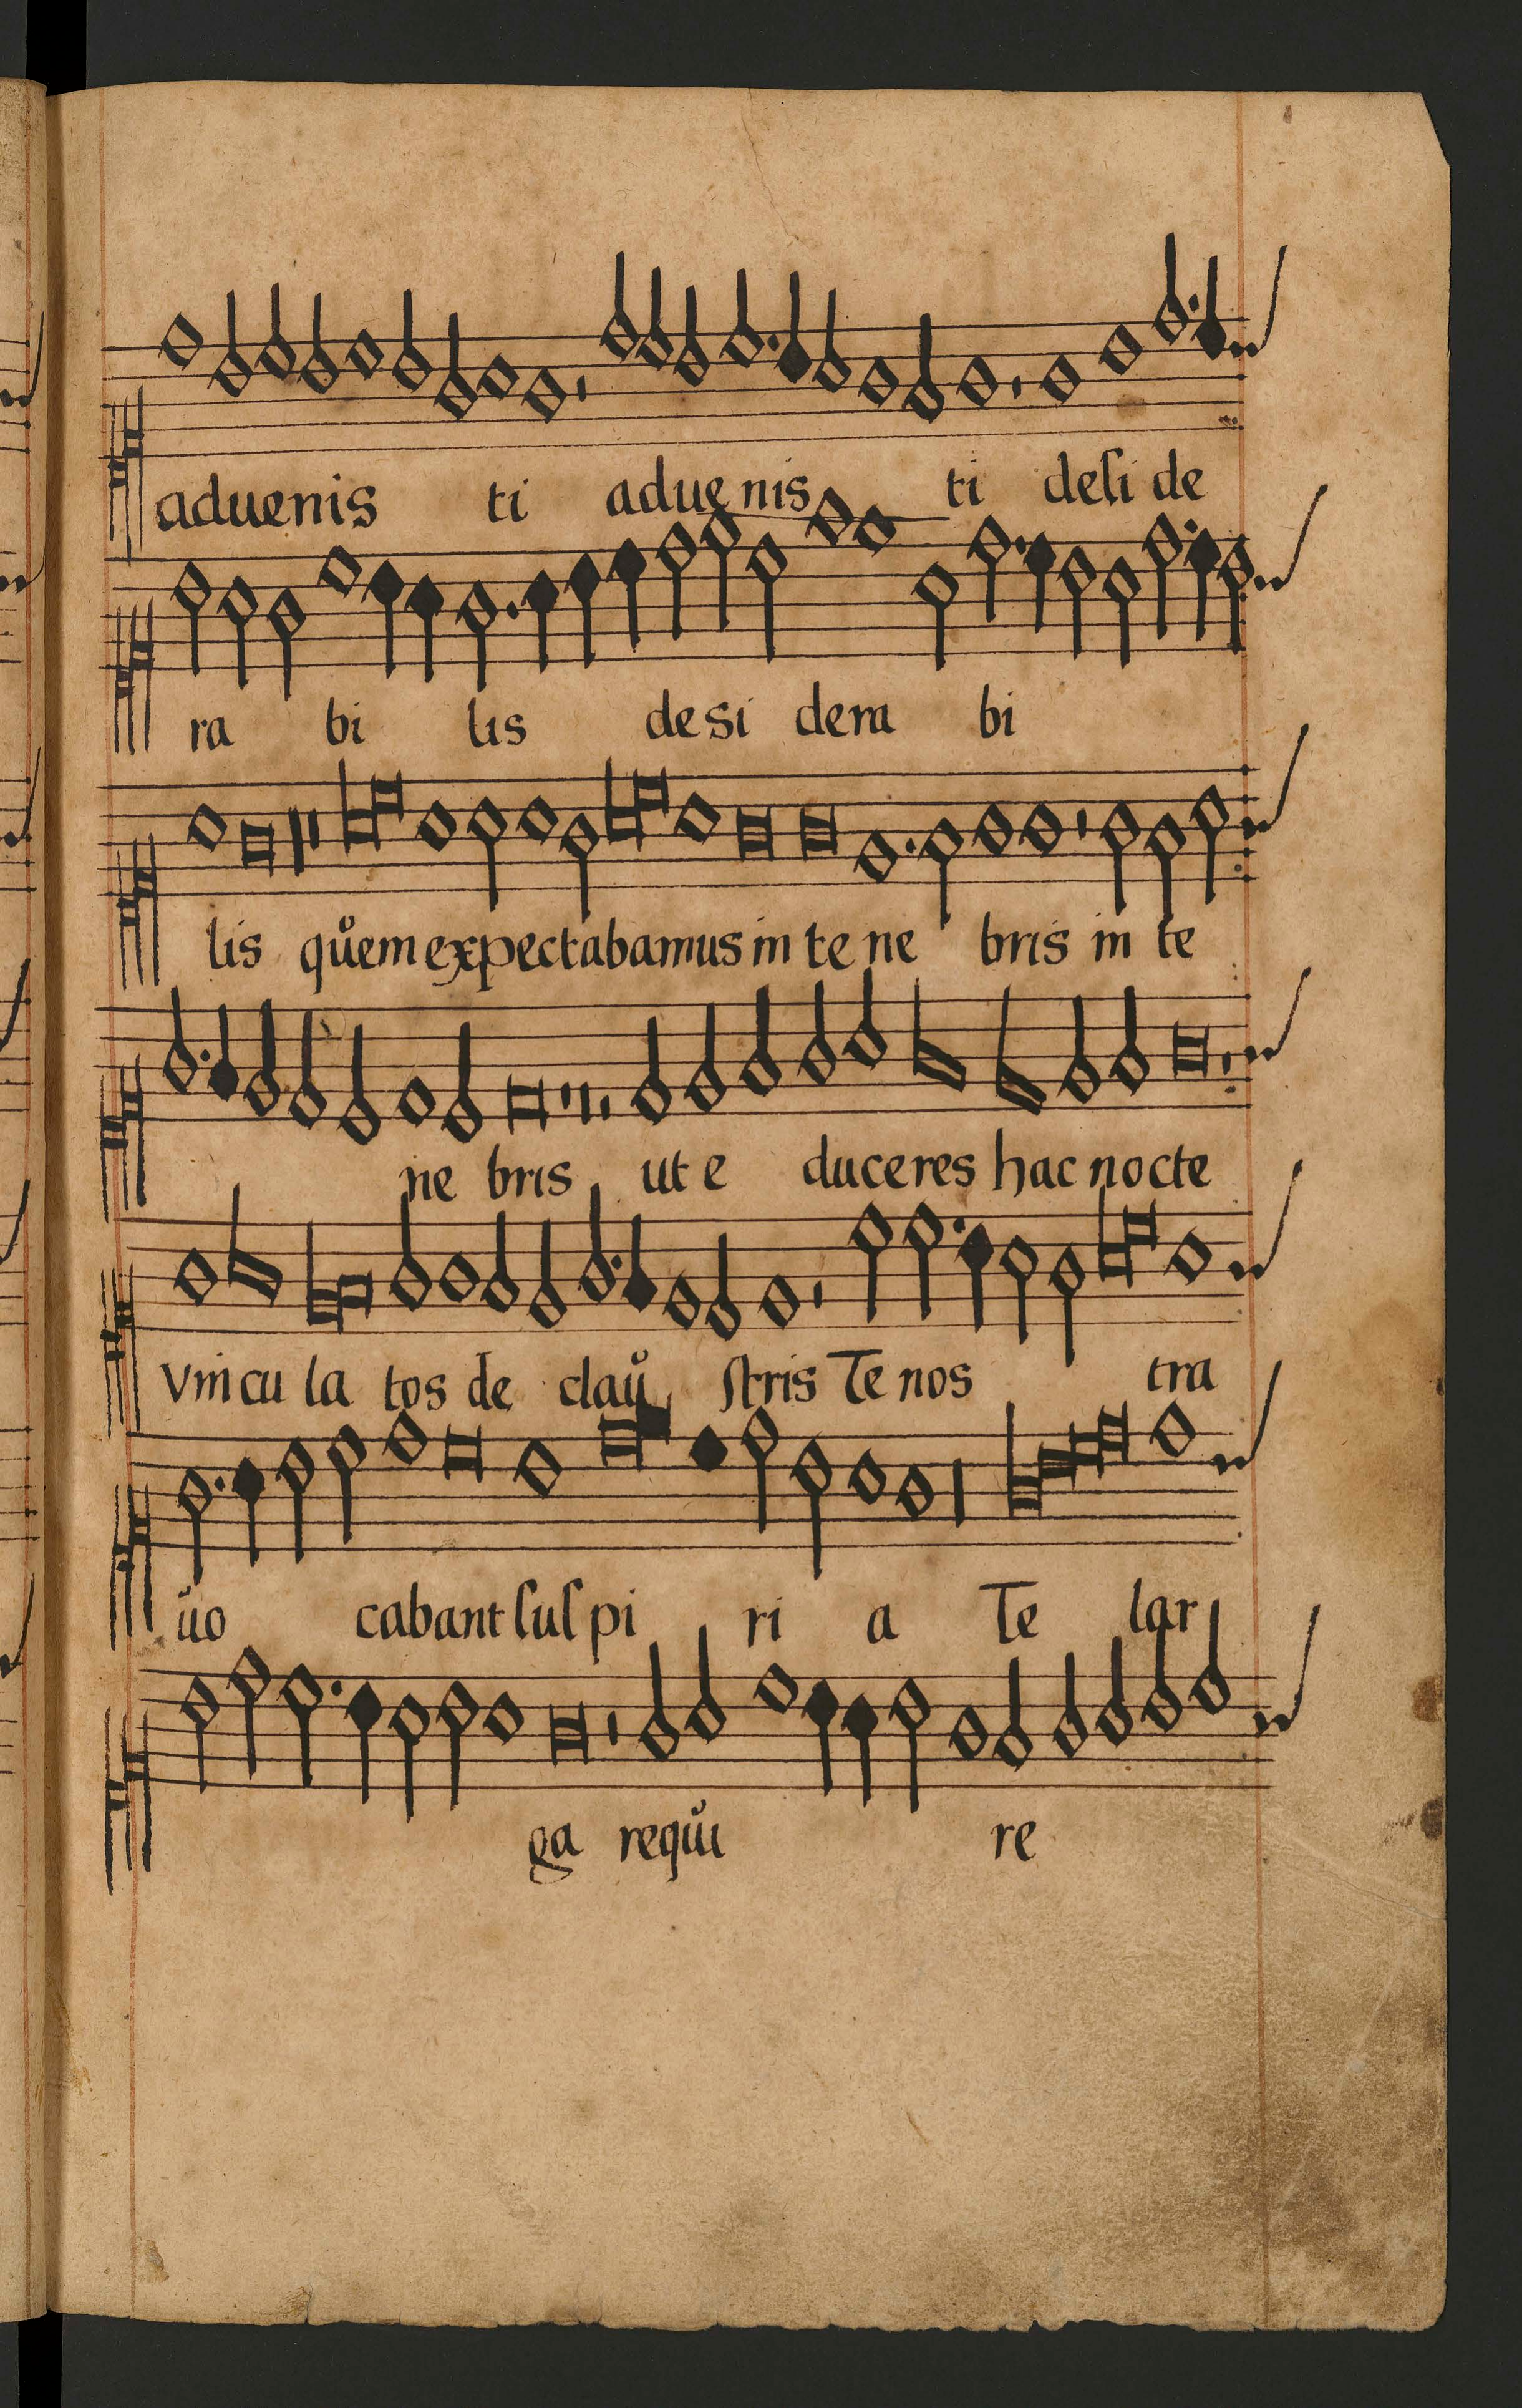 aduenis ti aduenis ti deſi de
ra bi lis desi dera bi
lis qůem expectabamus in te ne bris in te
ne bris ut e duceres hac nocte
vincu la tos de claů ſtris Te nos tra
ůo cabant ſuſpi ri a Te lar
ga reqůi re